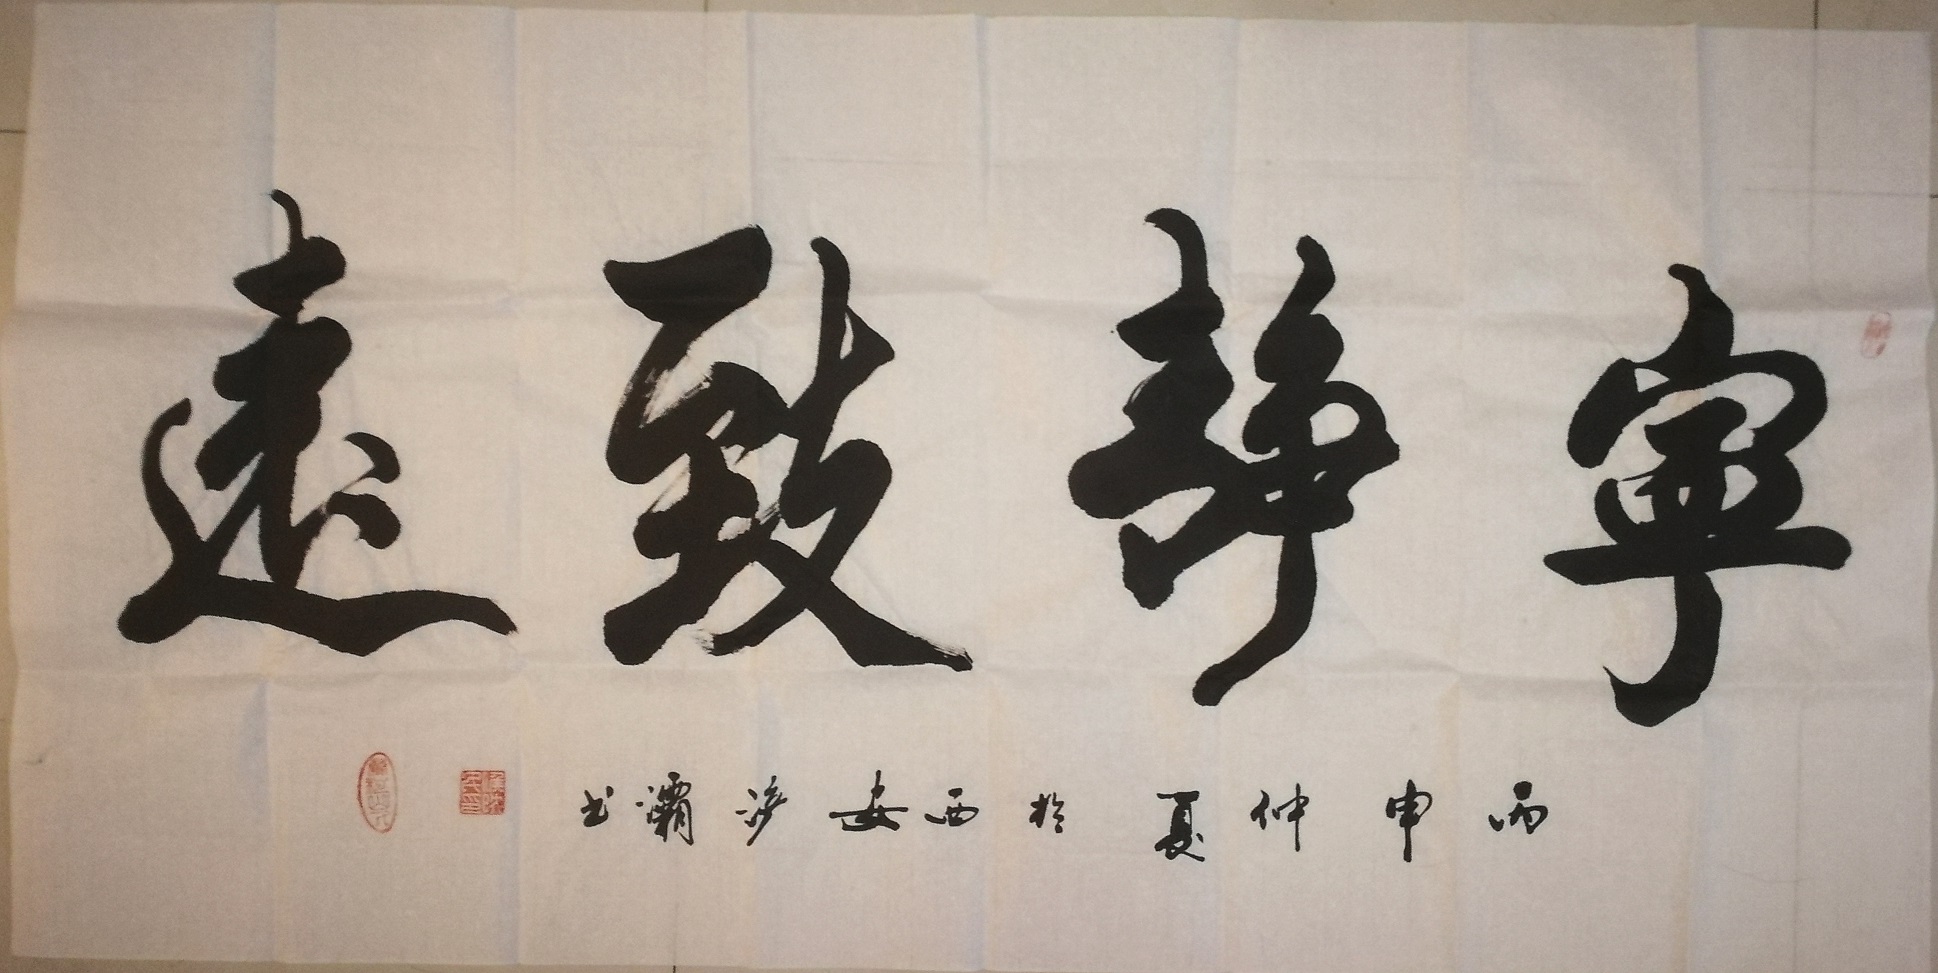 寧靜致遠
丙申仲夏於西安浐灞書